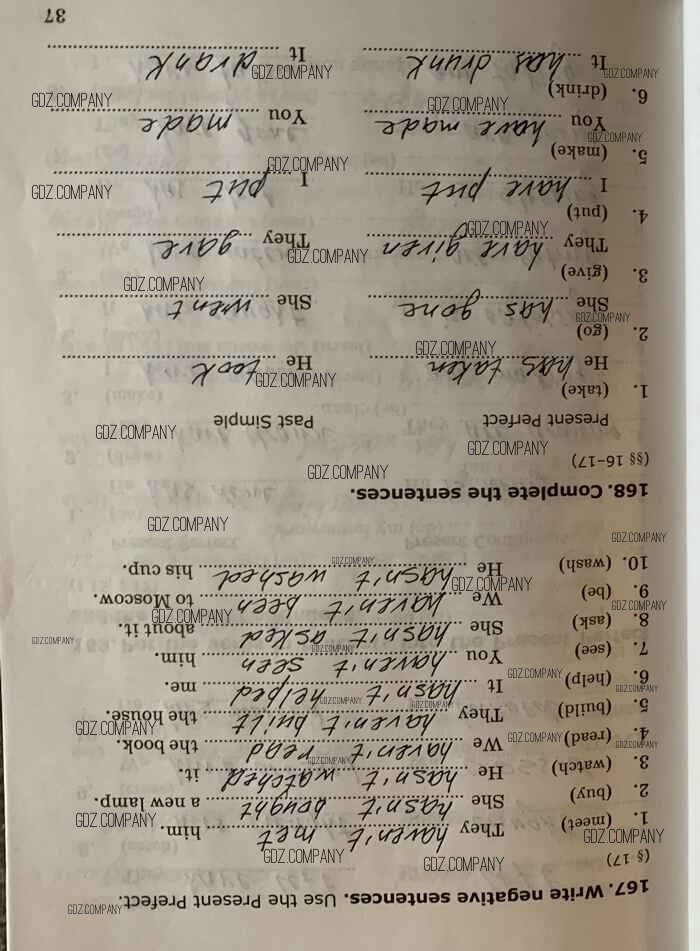 167. Write negative sentences. Use the Present Prefect.
(§ 17)
1. (meet) They haven't met him.
2. (buy) She hasn't bought a new lamp.
3. (watch) He hasn't watched it.
4. (read) We haven't read the book.
5. (build) They haven't built the house.
6. (help) It hasn't helped me.
7. (see) You haven't seen him.
8. (ask) She hasn't asked about it.
9. (be) We haven't been to Moscow.
10. (wash) He hasn't washed his cup.
168. Complete the sentences.
(§§ 16-17)
Present Perfect Past Simple
1. (take)
He has taken He took
2. (go)
She has gone She went
3. (give)
They have given They gave
4. (put)
I have put I put
5. (make)
You have made You made
6. (drink)
It has drunk It drank
37
GDZ.COMPANY